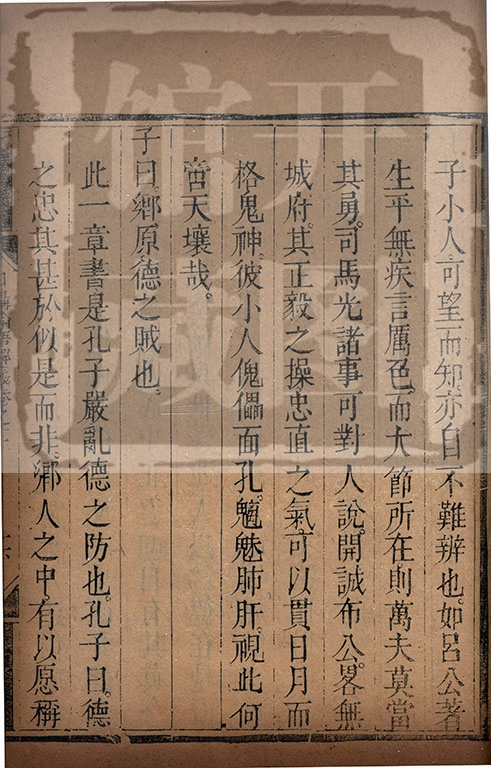 子小人可望而知亦自不難辨也如呂公著
生平無疾言厲色而大節所在則萬夫莫當
其勇司馬光諸事可對人說開誠布公畧無
城府其正毅之操忠直之氣可以貫日月而
格鬼神彼小人傀儡面孔魑魅肺肝視此何
啻天壤哉
子曰鄉原德之賊也
此一章書是孔子嚴亂德之防也孔子曰德
之忠其甚於似是而非鄉人之中有以愿稱